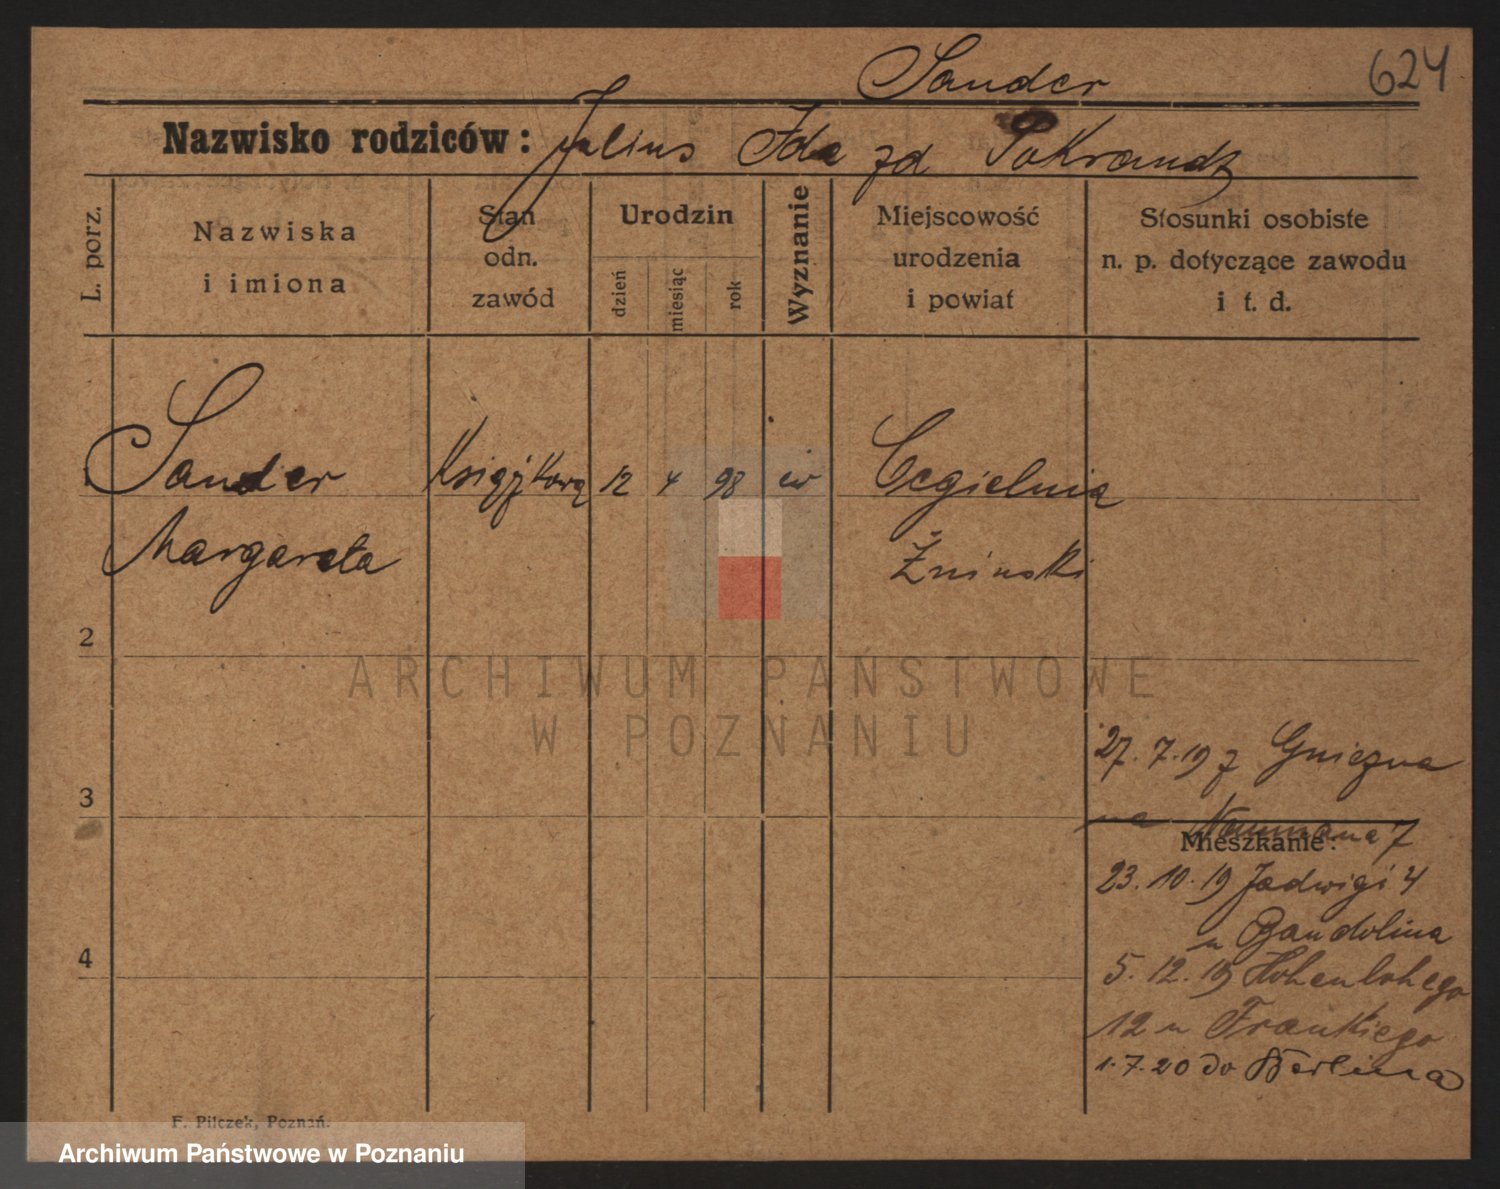 Sander 624
Nazwisko rodziców: Julius Ida zd Pokrandz
L. porz.
Nazwiska
i imiona
Stan
odn.
zawód
Urodzin
dzień
miesiąc
rok
Wyznanie
Miejscowość
urodzenia
i powiat
Stosunki osobiste
n. p. dotyczące zawodu
i t. d.
Sander Książkową 12 4 98 ew Cegielnia
Margareta Żniński
2
3
4
27. 7. 19 z Gniezna
na Naumana 7
Mieszkanie:
23. 10. 19 Jadwigi 4
u Bandolina
5. 12. 19 Hohenlohego
12 u Frankiego
1. 7. 20 do Berlina
F. Pilczek, Poznań.
ARCHIWUM PAŃSTWOWE
W POZNANIU
Archiwum Państwowe w Poznaniu